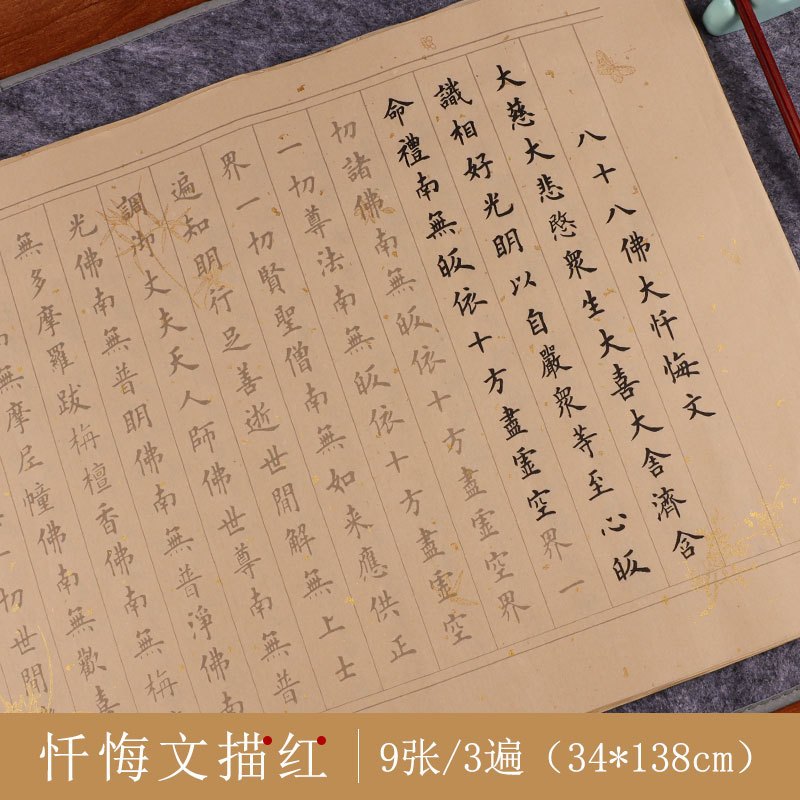 八十八佛大忏悔文
大慈大悲愍衆生大喜大舍濟含
識相好光明以自嚴衆等至心皈
命禮南無皈依十方盡虛空界一
切諸佛南無皈依十方盡虛空界
一切尊法南無皈依十方盡虛空
界一切賢聖僧南無如来應供正
遍知明行足善逝世間解無上士
調御丈夫天人師佛世尊南無普
光佛南無普明佛南無普淨佛南
無多摩羅跋栴檀香佛南無栴
無摩尼幢佛南無歡喜
一切世間
忏悔文描红 9张/3遍（34*138cm）